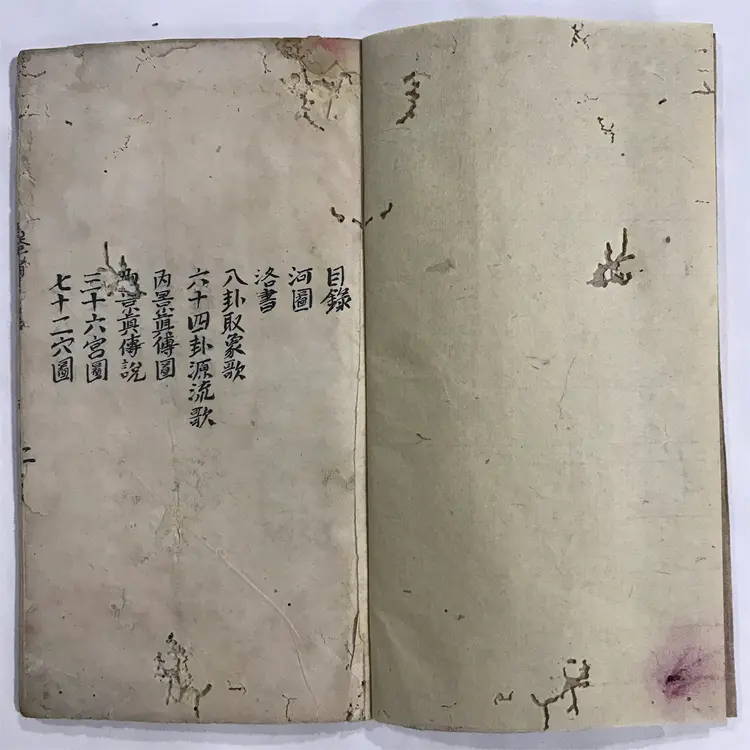 目錄
河圖
洛書
八卦取象歌
六十四卦源流歌
丙景真傳圖
景真傳說
三十六宮圖
七十二穴圖